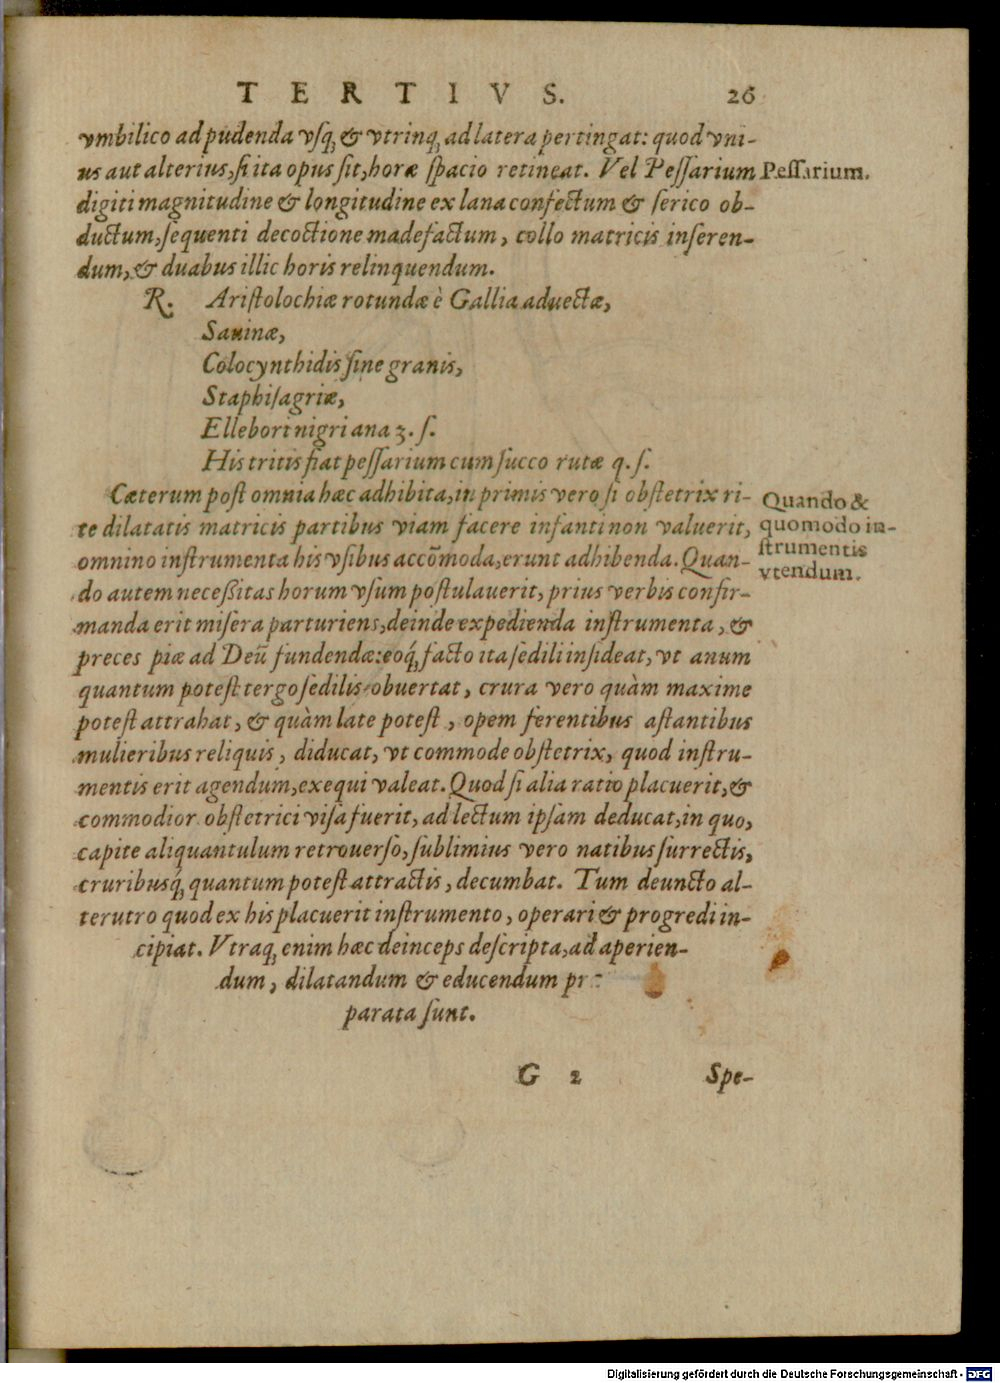 TERTIVS. 26
vmbilico ad pudenda vsq́; & vtrinq́; ad latera pertingat: quod vni-
us aut alterius, si ita opus sit, horæ spacio retineat. Vel Pessarium
Pessarium.
digiti magnitudine & longitudine ex lana confectum & serico ob-
ductum, sequenti decoctione madefactum, collo matricis inseren-
dum, & duabus illic horis relinquendum.
R. Aristolochiæ rotundæ è Gallia aduectæ,
Sauinæ,
Colocynthidis sine granis,
Staphisagriæ,
Ellebori nigri ana ʒ. ſ.
His tritis fiat pessarium cum succo rutæ q. s.
Cæterum post omnia hæc adhibita, in primis vero si obstetrix ri-
te dilatatis matricis partibus viam facere infanti non valuerit,
omnino instrumenta his vsibus accõmoda, erunt adhibenda. Quan-
do autem necessitas horum vsum postulauerit, prius verbis confir-
manda erit misera parturiens, deinde expedienda instrumenta, &
preces piæ ad Deũ fundendæ: eoq́; facto ita sedili insideat, vt anum
quantum potest tergo sedilis obuertat, crura vero quàm maxime
potest attrahat, & quàm late potest, opem ferentibus astantibus
mulieribus reliquis, diducat, vt commode obstetrix, quod instru-
mentis erit agendum, exequi valeat. Quod si alia ratio placuerit, &
commodior obstetrici visa fuerit, ad lectum ipsam deducat, in quo,
capite aliquantulum retrouerso, sublimius vero natibus surrectis,
cruribusq́; quantum potest attractis, decumbat. Tum deuncto al-
terutro quod ex his placuerit instrumento, operari & progredi in-
cipiat. Vtraq; enim hæc deinceps descripta, ad aperien-
dum, dilatandum & educendum pr
parata sunt.
Quando &
quomodo in-
strumentis
vtendum.
G 2 Spe-
Digitalisierung gefördert durch die Deutsche Forschungsgemeinschaft - DFG